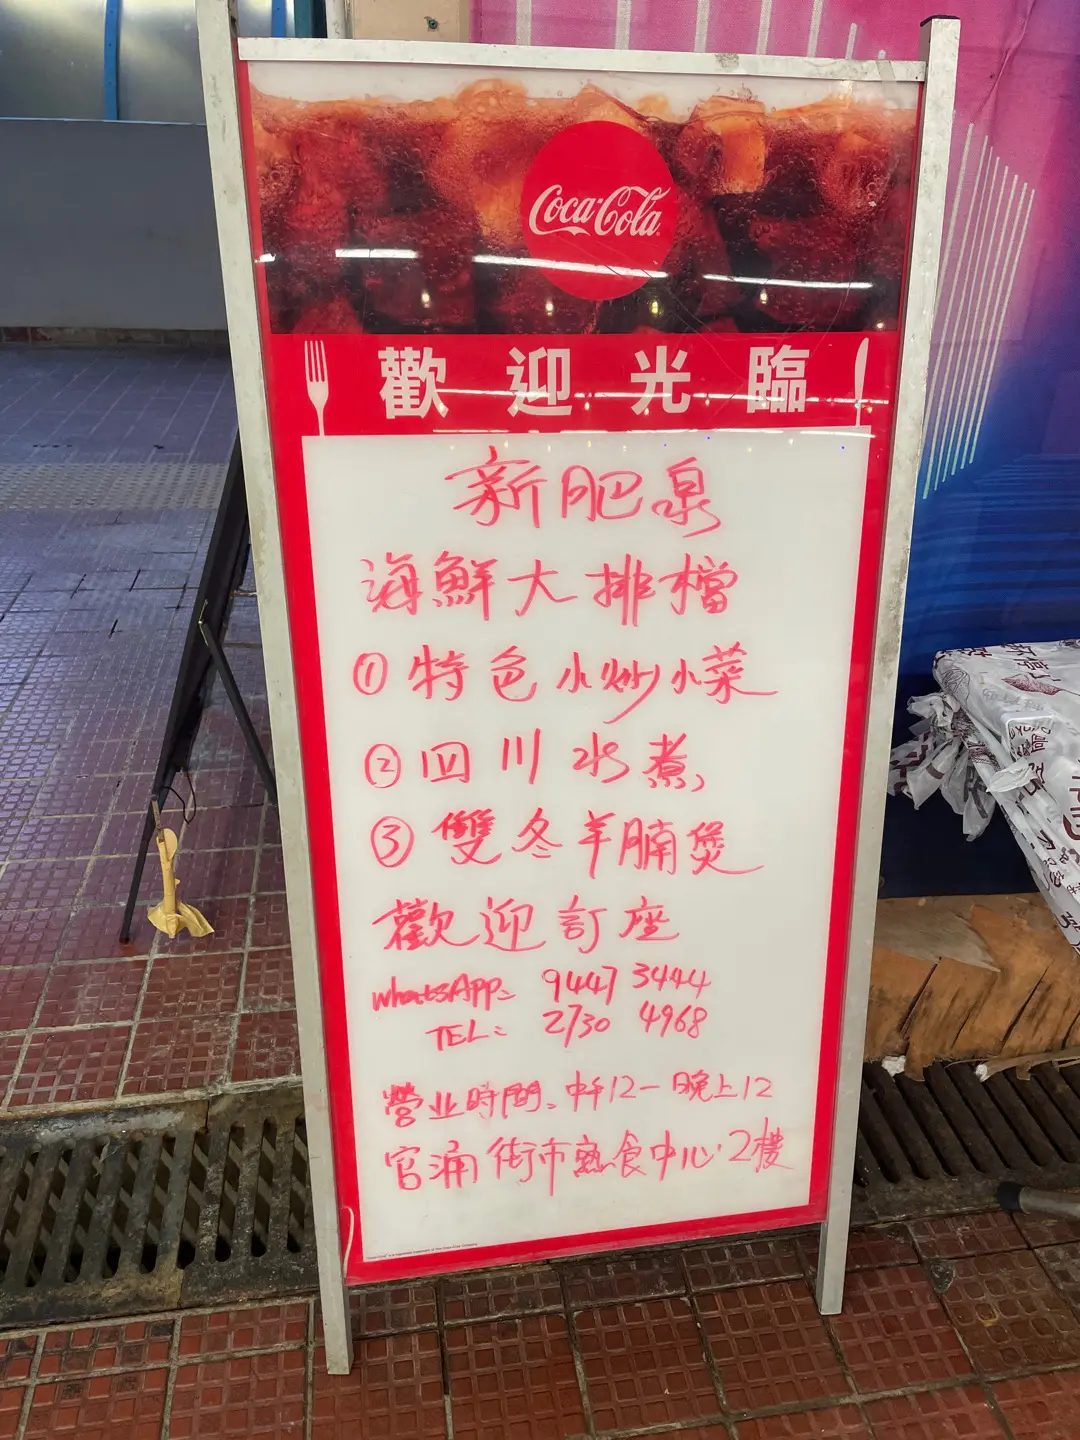 Coca-Cola
歡迎光臨
新肥泉
海鮮大排檔
①特色小炒小菜
②四川水煮
③雙冬羊腩煲
歡迎訂座
WhatsApp: 9447 3444
TEL: 2730 4968
營业時間、中午12一晚上12
官涌街市熟食中心·2樓